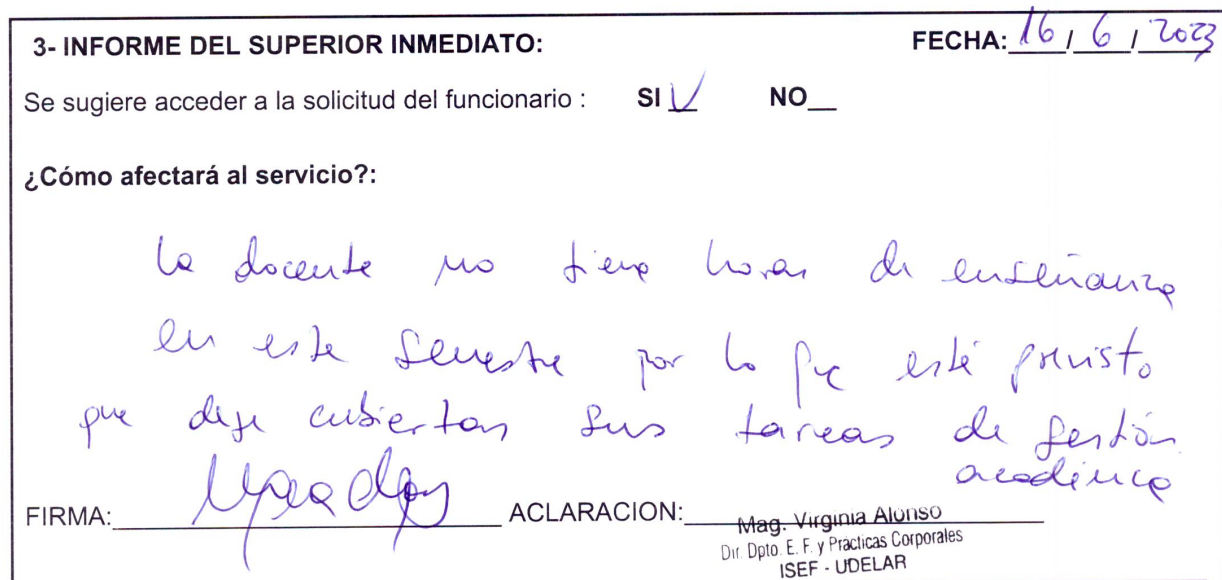 3- INFORME DEL SUPERIOR INMEDIATO: FECHA: 16 / 6 / 2023
Se sugiere acceder a la solicitud del funcionario : SI V NO__
¿Cómo afectará al servicio?:
La docente no tiene horas de enseñanza
en este semestre por lo que está previsto
que deje cubiertas sus tareas de gestión
académica
FIRMA: ACLARACION: Mag. Virginia Alonso
Dir. Dpto. E. F. y Prácticas Corporales
ISEF - UDELAR